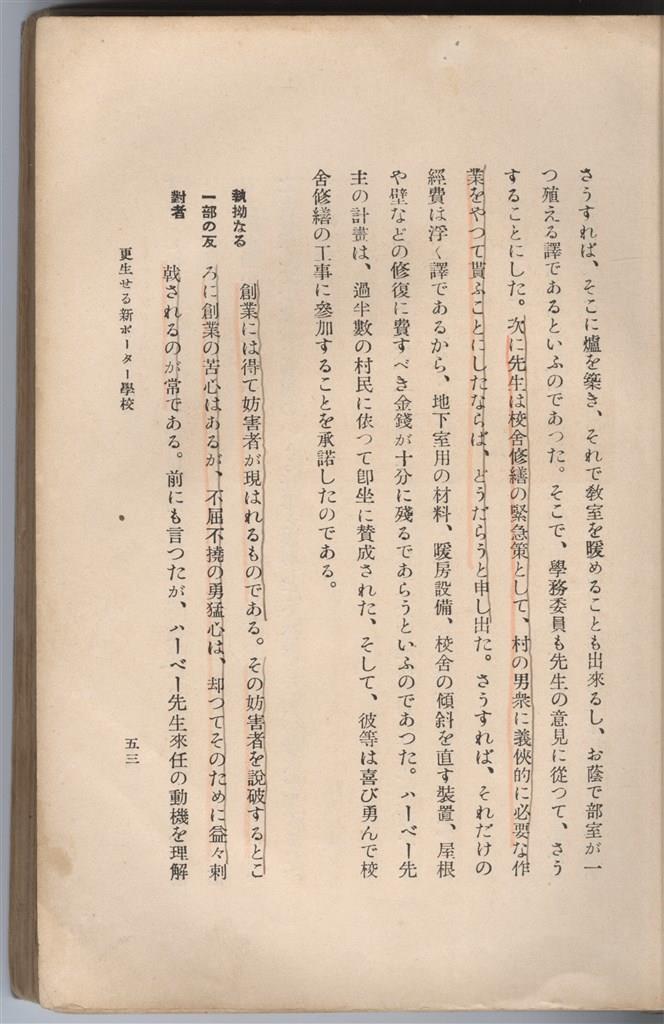 さうすれば、そこに爐を築き、それで敎室を暖めることも出來るし、お蔭で部室が一
つ殖える譯であるといふのであつた。そこで、學務委員も先生の意見に從つて、さう
することにした。次に先生は校舍修繕の緊急策として、村の男衆に義俠的に必要な作
業をやつて貰ふことにしたならば、どうだらうと申し出た。さうすれば、それだけの
經費は浮く譯であるから、地下室用の材料、暖房設備、校舍の傾斜を直す裝置、屋根
や壁などの修復に費すべき金錢が十分に殘るであらうといふのであつた。ハーベー先
生の計畫は、過半數の村民に依つて卽坐に賛成された、そして、彼等は喜び勇んで校
舍修繕の工事に參加することを承諾したのである。
執拗なる
一部の反
對者
創業には得て妨害者が現はれるものである。その妨害者を說破するとこ
ろに創業の苦心はあるが、不屈不撓の勇猛心は、却つてそのために益々刺
戟されるのが常である。前にも言つたが、ハーベー先生來任の動機を理解
更生せる新ポーター學校
五三